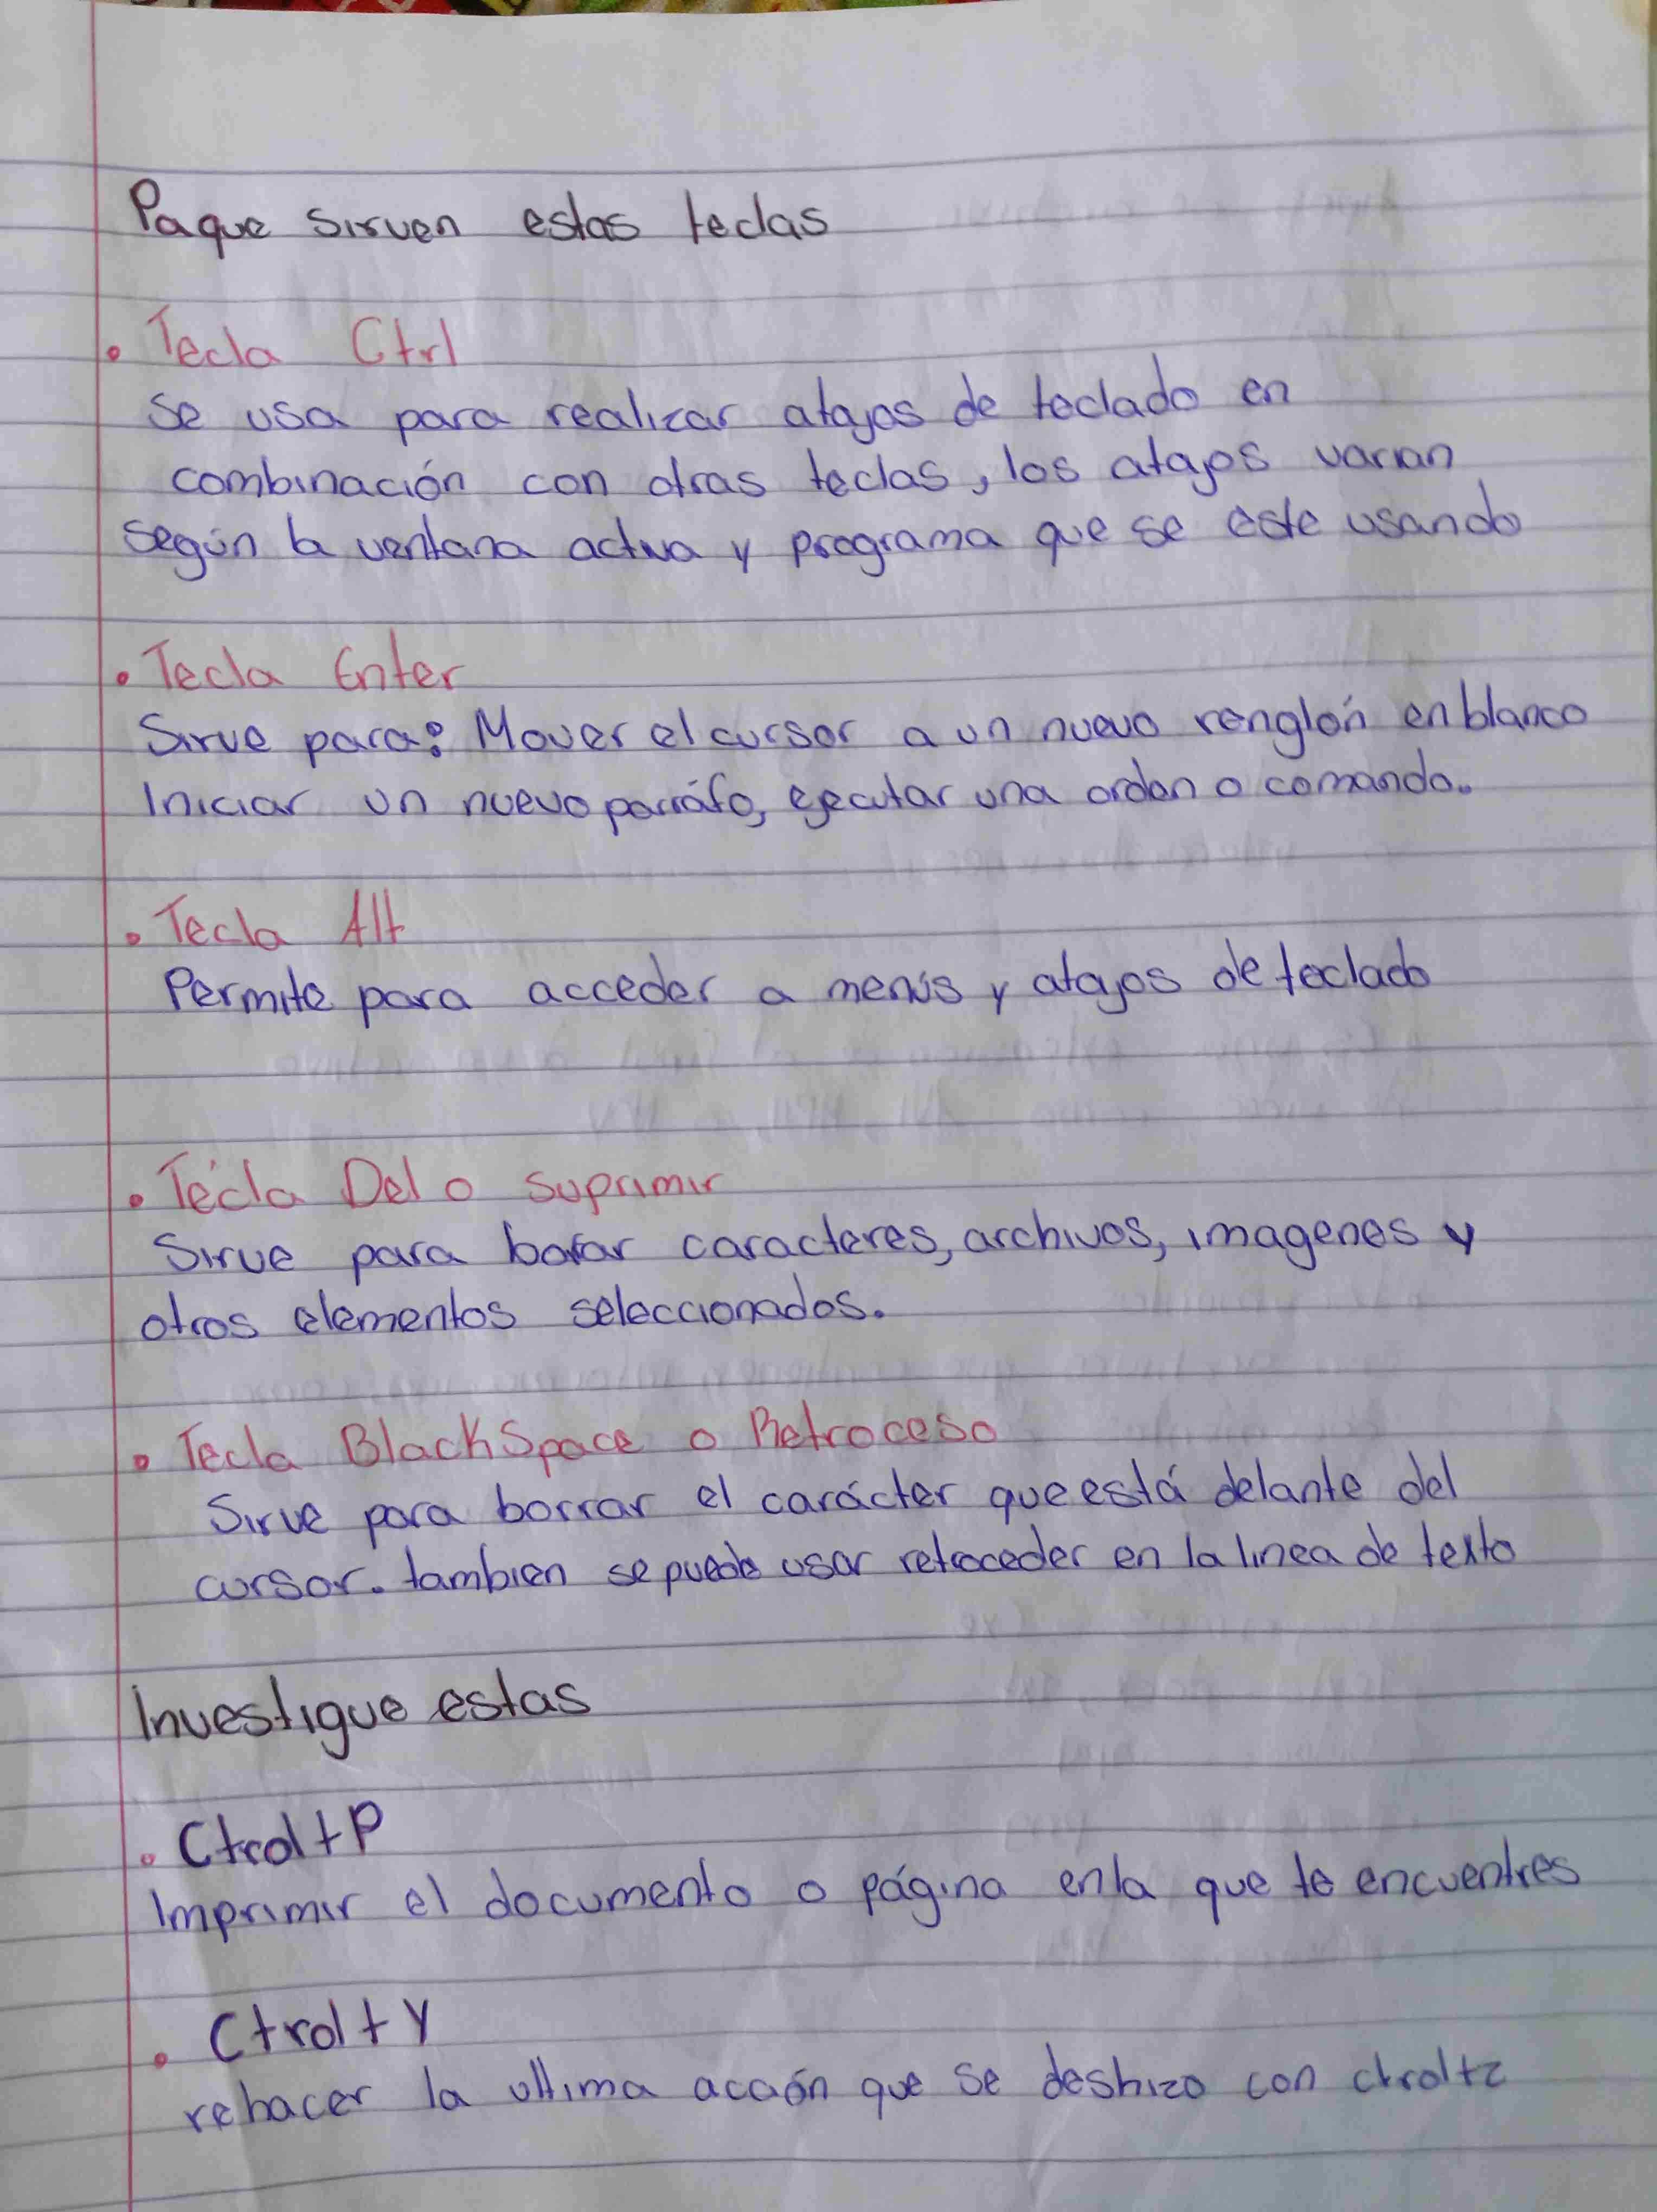 Paque sirven estas teclas
• Tecla Ctrl
Se usa para realizar atajos de teclado en
combinación con otras teclas, los atajos varian
según la ventana activa y programa que se este usando
• Tecla Enter
Sirve para: Mover el cursor a un nuevo renglón en blanco
Iniciar un nuevo parráfo, ejecutar una orden o comando.
• Tecla Alt
Permite para acceder a menús y atajos de teclado
• Técla Del o suprimir
Sirve para borar caracteres, archivos, imagenes y
otros elementos seleccionados.
• Tecla BlackSpace o Retroceso
Sirve para borrar el carácter que está delante del
cursor. tambien se puede usar retroceder en la linea de texto
Investigue estas
• Ctrol+P
Imprimir el documento o página en la que te encuentres
• Ctrol+Y
rehacer la ultima acción que se deshizo con ctrol+z